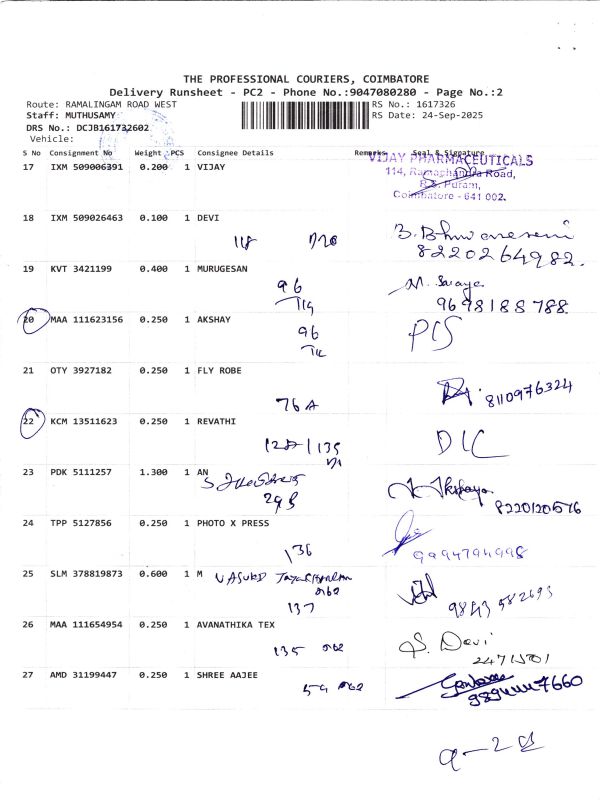 THE PROFESSIONAL COURIERS, COIMBATORE
Delivery Runsheet - PC2 - Phone No.:9047080280 - Page No.:2
Route: RAMALINGAM ROAD WEST
RS No.: 1617326
Staff: MUTHUSAMY
RS Date: 24-Sep-2025
DRS No.: DCJB161732602
Vehicle:
S No Consignment No Weight PCS Consignee Details Remarks Seal & Signature
17 IXM 509006391 0.200 1 VIJAY
VIJAY PHARMACEUTICALS
114, Ramachandra Road,
R.S. Puram,
Coimbatore - 641 002.
18 IXM 509026463 0.100 1 DEVI
118
8220264982.
19 KVT 3421199 0.400 1 MURUGESAN
96
9698188788.
20 MAA 111623156 0.250 1 AKSHAY
96
21 OTY 3927182 0.250 1 FLY ROBE
76A
8110976324
22 KCM 13511623 0.250 1 REVATHI
DIC
23 PDK 5111257 1.300 1 AN
8220120576
24 TPP 5127856 0.250 1 PHOTO X PRESS
136
9994794998
25 SLM 378819873 0.600 1 M
137
9843582693
26 MAA 111654954 0.250 1 AVANATHIKA TEX
135
S. Devi
27 AMD 31199447 0.250 1 SHREE AAJEE